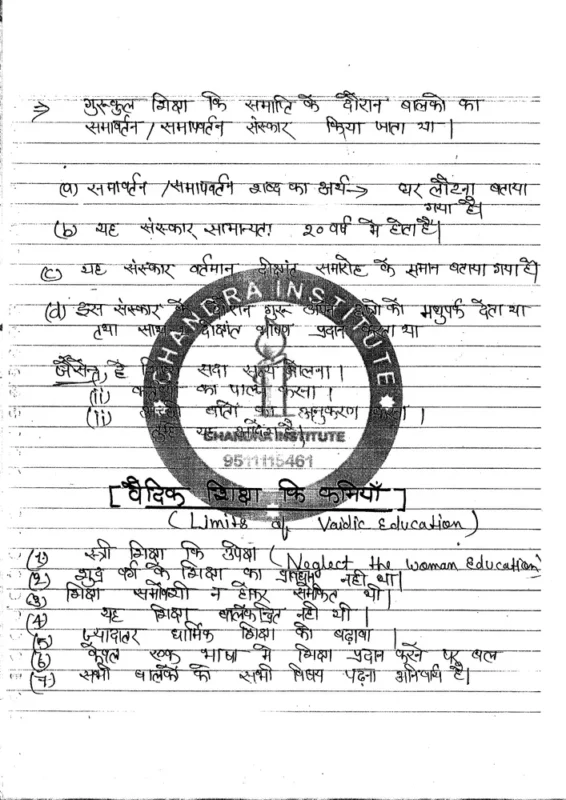 ⇒ गुरुकुल शिक्षा कि समाप्ति के दौरान बालको का
समावर्तन / समापवर्तन संस्कार किया जाता था |
(a) समावर्तन / समापवर्तन शब्द का अर्थ → घर लौटना बताया
गया है।
(b) यह संस्कार सामान्यतः २० वर्ष मे होता है|
(c) यह संस्कार वर्तमान दीक्षांत समारोह के समान बताया गया है।
(d) इस संस्कार के दौरान गुरु अपने को मधुपर्क देता था
तथा साथ दीक्षांत भाषण प्रदान करता था
जैसे- (i) हे शिष्य सदा सत्य बोलना |
(ii) का पालन करना |
(ii) बातो का अनुकरण करना |
यह है |
CHANDRA INSTITUTE
CHANDRA INSTITUTE
9511115461
[ वैदिक शिक्षा कि कमियाँ ]
( Limits of Vaidic Education )
(1) स्त्री शिक्षा कि उपेक्षा ( Neglect the Woman Education)
(2) शुद्र वर्ग के शिक्षा का प्रावधान नही था|
(3) शिक्षा न होकर थी|
(4) यह शिक्षा बालकेन्द्रित नही थी |
(5) ज्यादातर धार्मिक शिक्षा को बढ़ावा |
(6) केवल एक भाषा मे शिक्षा प्रदान करने पर बल
(7) सभी बालको को सभी विषय पढ़ना अनिवार्य है|